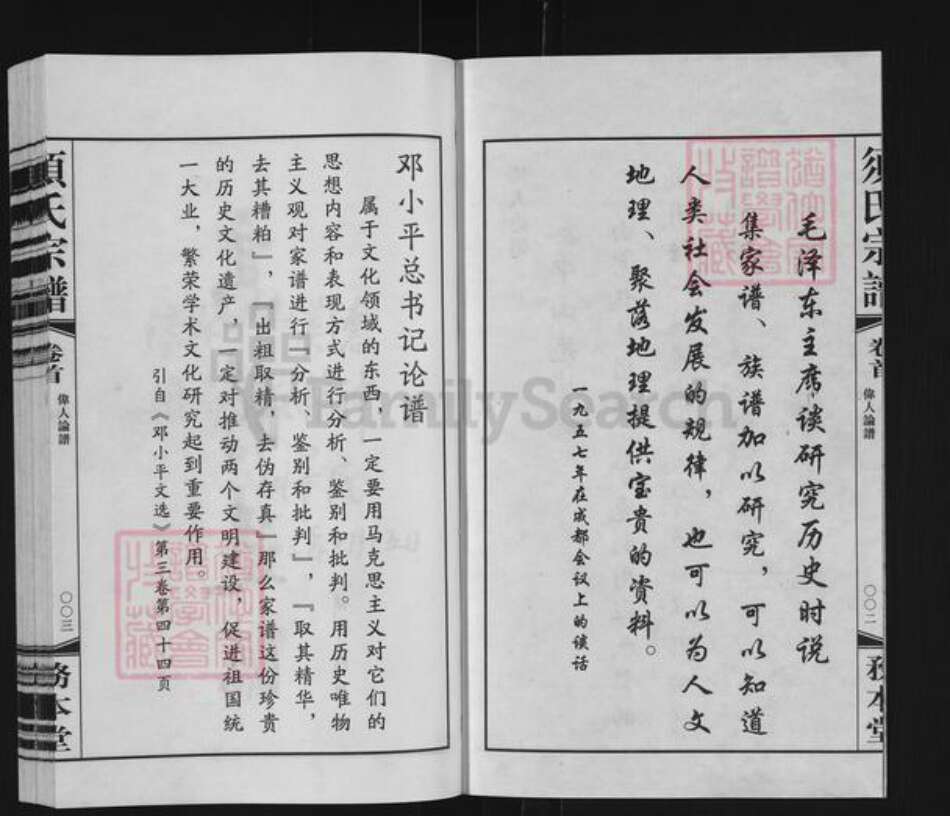 须氏宗譜
卷首
偉人論譜
〇〇二
務本堂
毛泽东主席谈研究历史时说
集家谱、族谱加以研究，可以知道
人类社会发展的规律，也可以为人文
地理、聚落地理提供宝贵的资料。
一九五七年在成都会议上的谈话
邓小平总书记论谱
属于文化领域的东西，一定要用马克思主义对它们的
思想内容和表现方式进行分析、鉴别和批判。用历史唯物
主义观对家谱进行「分析、鉴别和批判」，「取其精华，
去其糟粕」，「出粗取精，去伪存真」那么家谱这份珍贵
的历史文化遗产，一定对推动两个文明建设，促进祖国统
一大业，繁荣学术文化研究起到重要作用。
引自《邓小平文选》第三卷第四十四页
須氏宗譜
卷首
偉人論譜
〇〇三
務本堂
FamilySearch